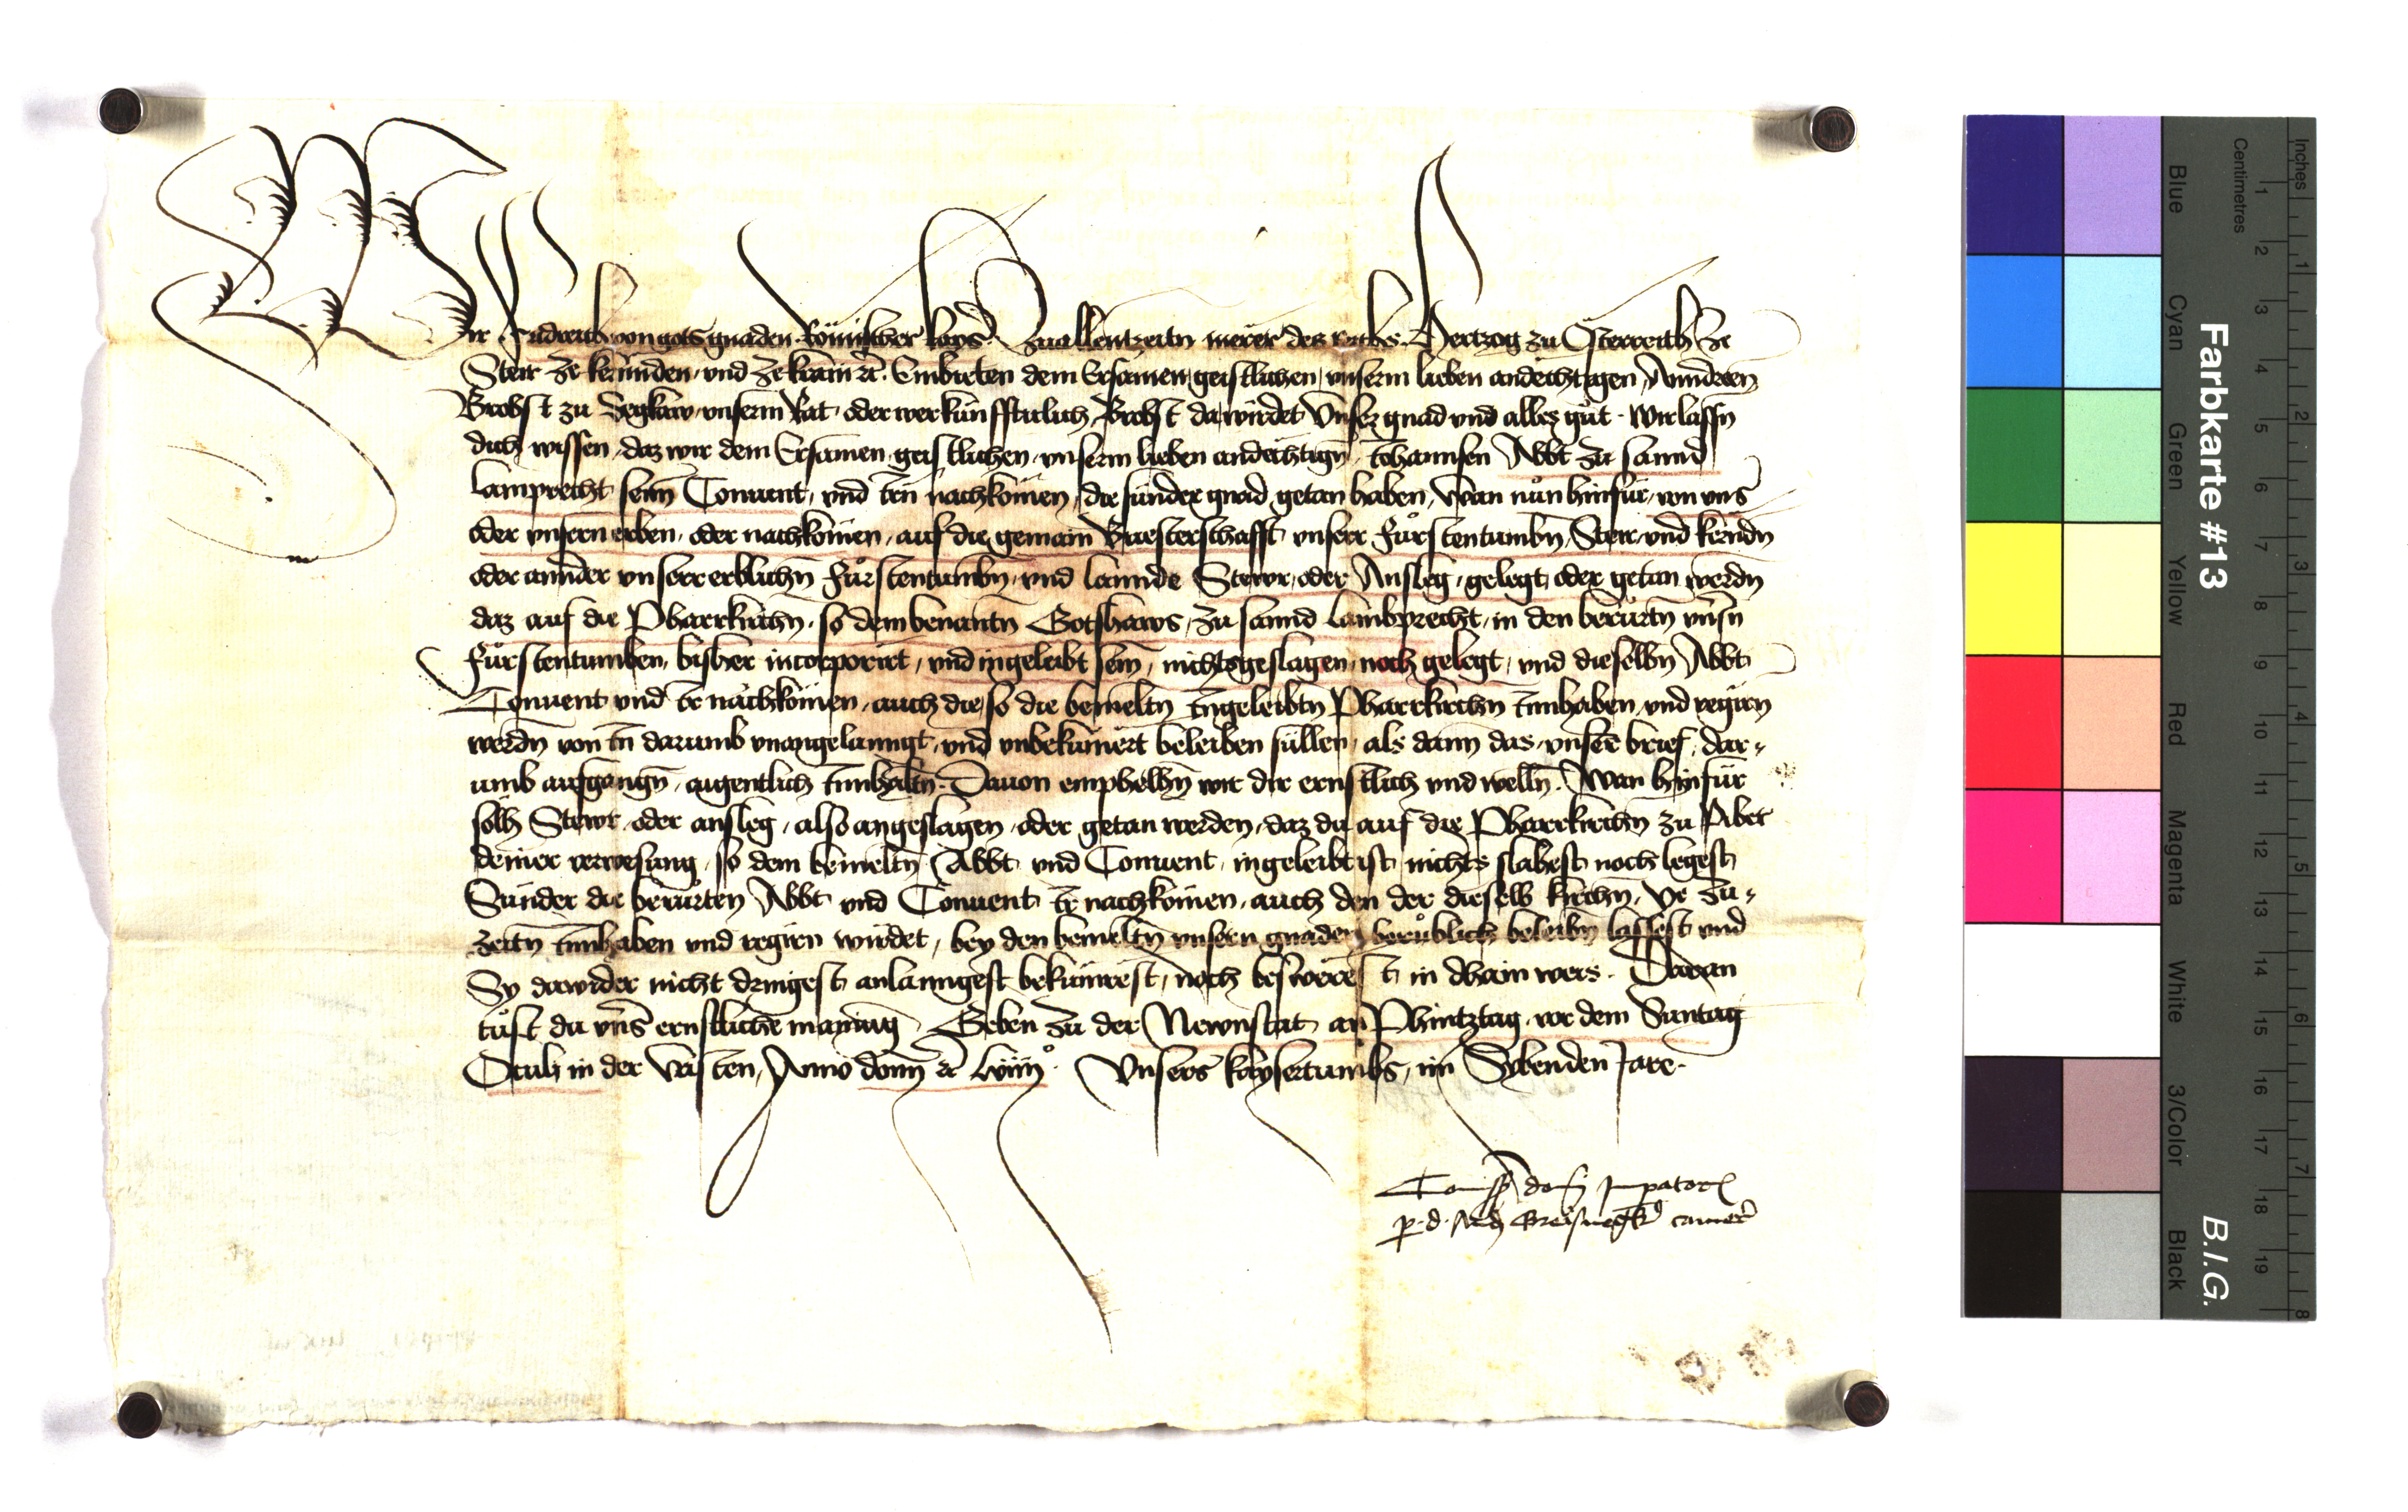 Wir Fridreich von gots gnaden Römischer kays̄ zuallentzeitn merer des reichs Hertzog zu Österreich ze
Steir ze kerennden und ze krain ꝛc̄. Embieten dem Ersamen geistlichen unserm lieben andechtigen Anndreen
Brobst zu Segkaw unserm Rat oder wer kunfftiklich Brobst da wirdet unser gnad und alles gůt. Wir lassn̄
dich wissen daz wir dem Ersamen geistlichen unserm lieben andechtign̄ Johannsen Abbt zu sannd
Lamprecht seim Conuent und irn nachkōmen die sunder gnad getan haben, Wan nůn hinfůr von uns
oder unsern erben oder nachkōmen auf die gemain Briesterschafft unserr Fůrstentumbn̄ Steir und kerndn̄
oder annder unserr erblichn̄ Fůrstentumbn̄ und lannde Stewr oder Ansleg gelegt oder getan werdn̄
daz auf die Pharrkirchn̄ so dem benantn̄ Gotshaws zu sannd Lambrecht in den berurtn̄ unsn̄
Fůrstentumben bisher incorporirt und ingeleibt sein nichts geslagen noch gelegt und dieselbn̄ Abbt
Conuent und ir nachkōmen auch die so die bemeltn̄ ingeleibtn̄ Pharrkirchn̄ innhaben und regirn
werdn̄ von in darumb unangelanngt und unbekūmert beleiben sullen als dann das unserr brief dar-
umb ausgangn̄ aigentlich innhaltn. Dauon emphelhn̄ wir dir ernstlich und welln̄. Wan hinfůr
solh Stewr oder ansleg also angeslagen oder getan werden, daz du auf die Pharrkirchn̄ zu Pibet
deiner verwesung so dem bemeltn̄ Abbt und Conuent ingeleibt ist nichts slahest noch legest
Sunder die berurten Abbt und Conuent ir nachkōmen auch den der dieselb kirchn̄ ye zu-
zeitn innhaben und regirn wirdet, bey den bemeltn̄ unsern gnaden berůblich beleibn̄ lassest und
Sy dawider nicht dringest anlanngest bekūmrest noch beswerest in dhain weis. Daran
tůst du uns ernstliche maynung Geben zu der Newnstat an Phintztag vor dem Suntag
Oculi in der Vasten Anno domī ꝛc̄ lviiiº. Unsers kaysertumbs im Sybenden Jare.
Com̄issio domī Imperatoris
p. d. camer̄